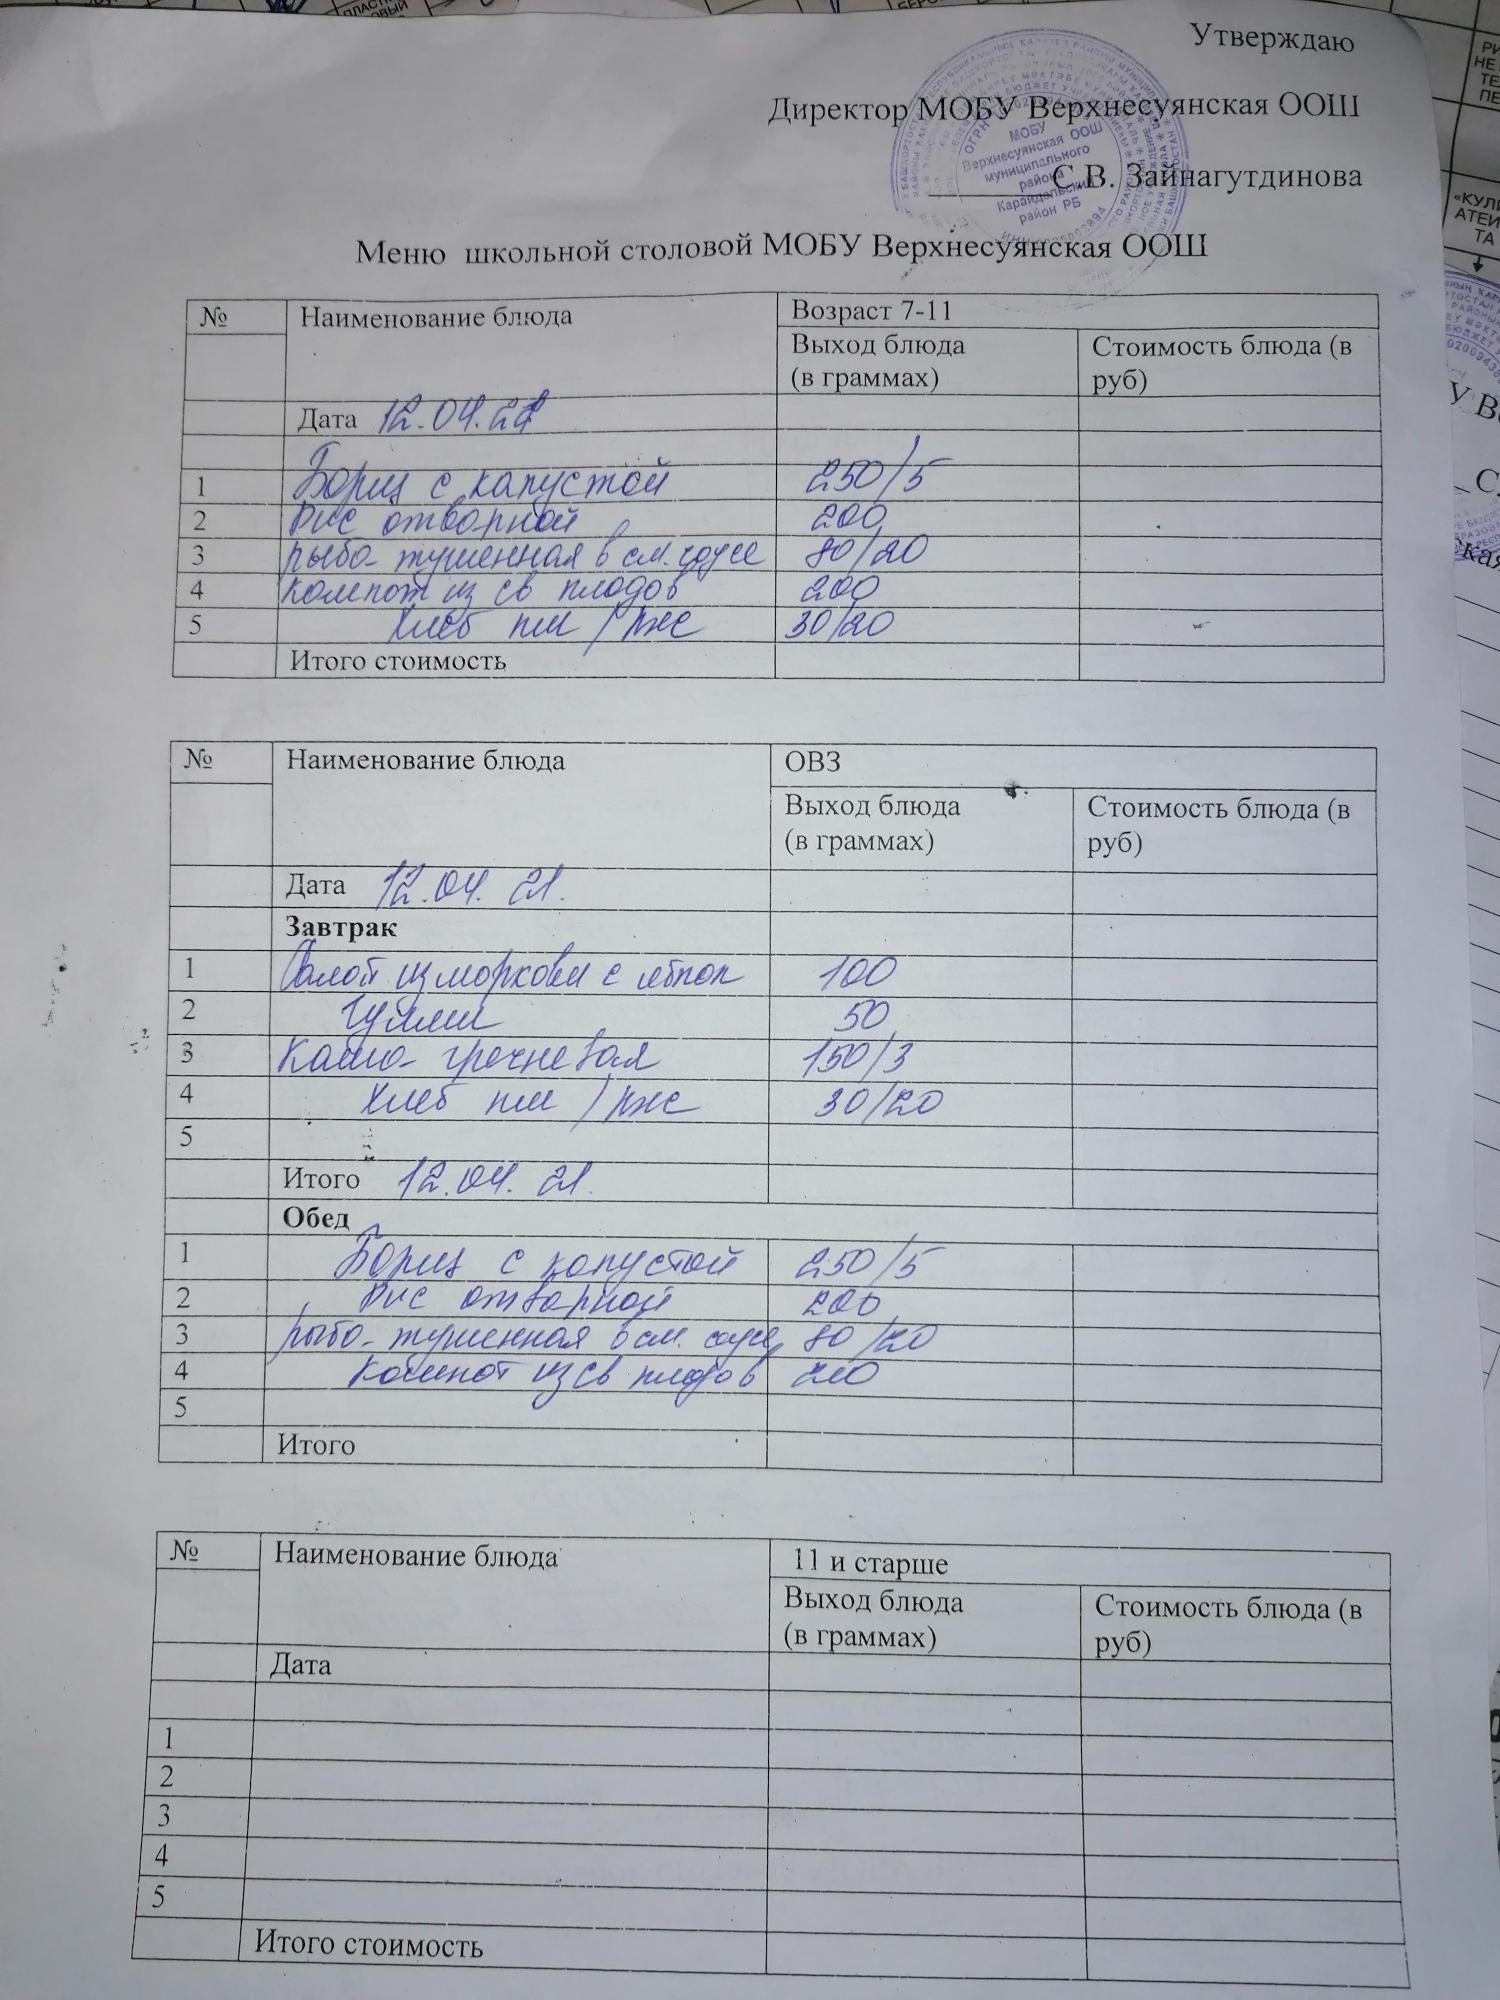 Утверждаю
Директор МОБУ Верхнесуянская ООШ
С.В. Зайнагутдинова
МОБУ
Верхнесуянская ООШ
муниципального
района
Караидельский
район РБ
Меню школьной столовой МОБУ Верхнесуянская ООШ
№ Наименование блюда Возраст 7-11
Выход блюда Стоимость блюда (в
(в граммах) руб)
Дата 12.04.21
1 Борщ с капустой 250/5
2 Рис отворной 200
3 рыба тушенная в см. соусе 80/20
4 компот из св плодов 200
5 Хлеб пш / рже 30/20
Итого стоимость
№ Наименование блюда ОВЗ
Выход блюда Стоимость блюда (в
(в граммах) руб)
Дата 12.04. 21.
Завтрак
1 Салат из моркови с 100
2 Гуляш 50
3 Каша гречневая 150/3
4 Хлеб пш / рже 30/20
5
Итого 12.04. 21.
Обед
1 Борщ с капустой 250/5
2 Рис отворной 200
3 рыба тушенная в см. соусе 80/20
4 Компот из св плодов 200
5
Итого
№ Наименование блюда 11 и старше
Выход блюда Стоимость блюда (в
(в граммах) руб)
Дата
1
2
3
4
5
Итого стоимость